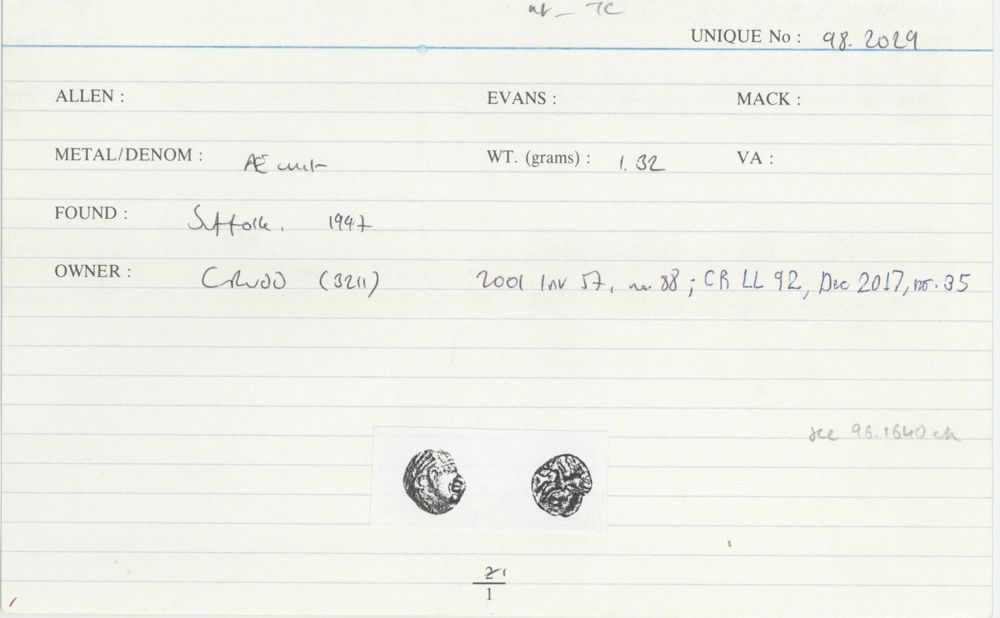 UNIQUE No : 98. 2029
ALLEN : EVANS : MACK :
METAL/DENOM : Æ unit WT. (grams) : 1.32 VA :
FOUND : Suffolk. 1997
OWNER : CRUDD (3211) 2001 Inv 57, no. 88 ; CR LL 92, Dec 2017, no. 35
see 96.1640
1